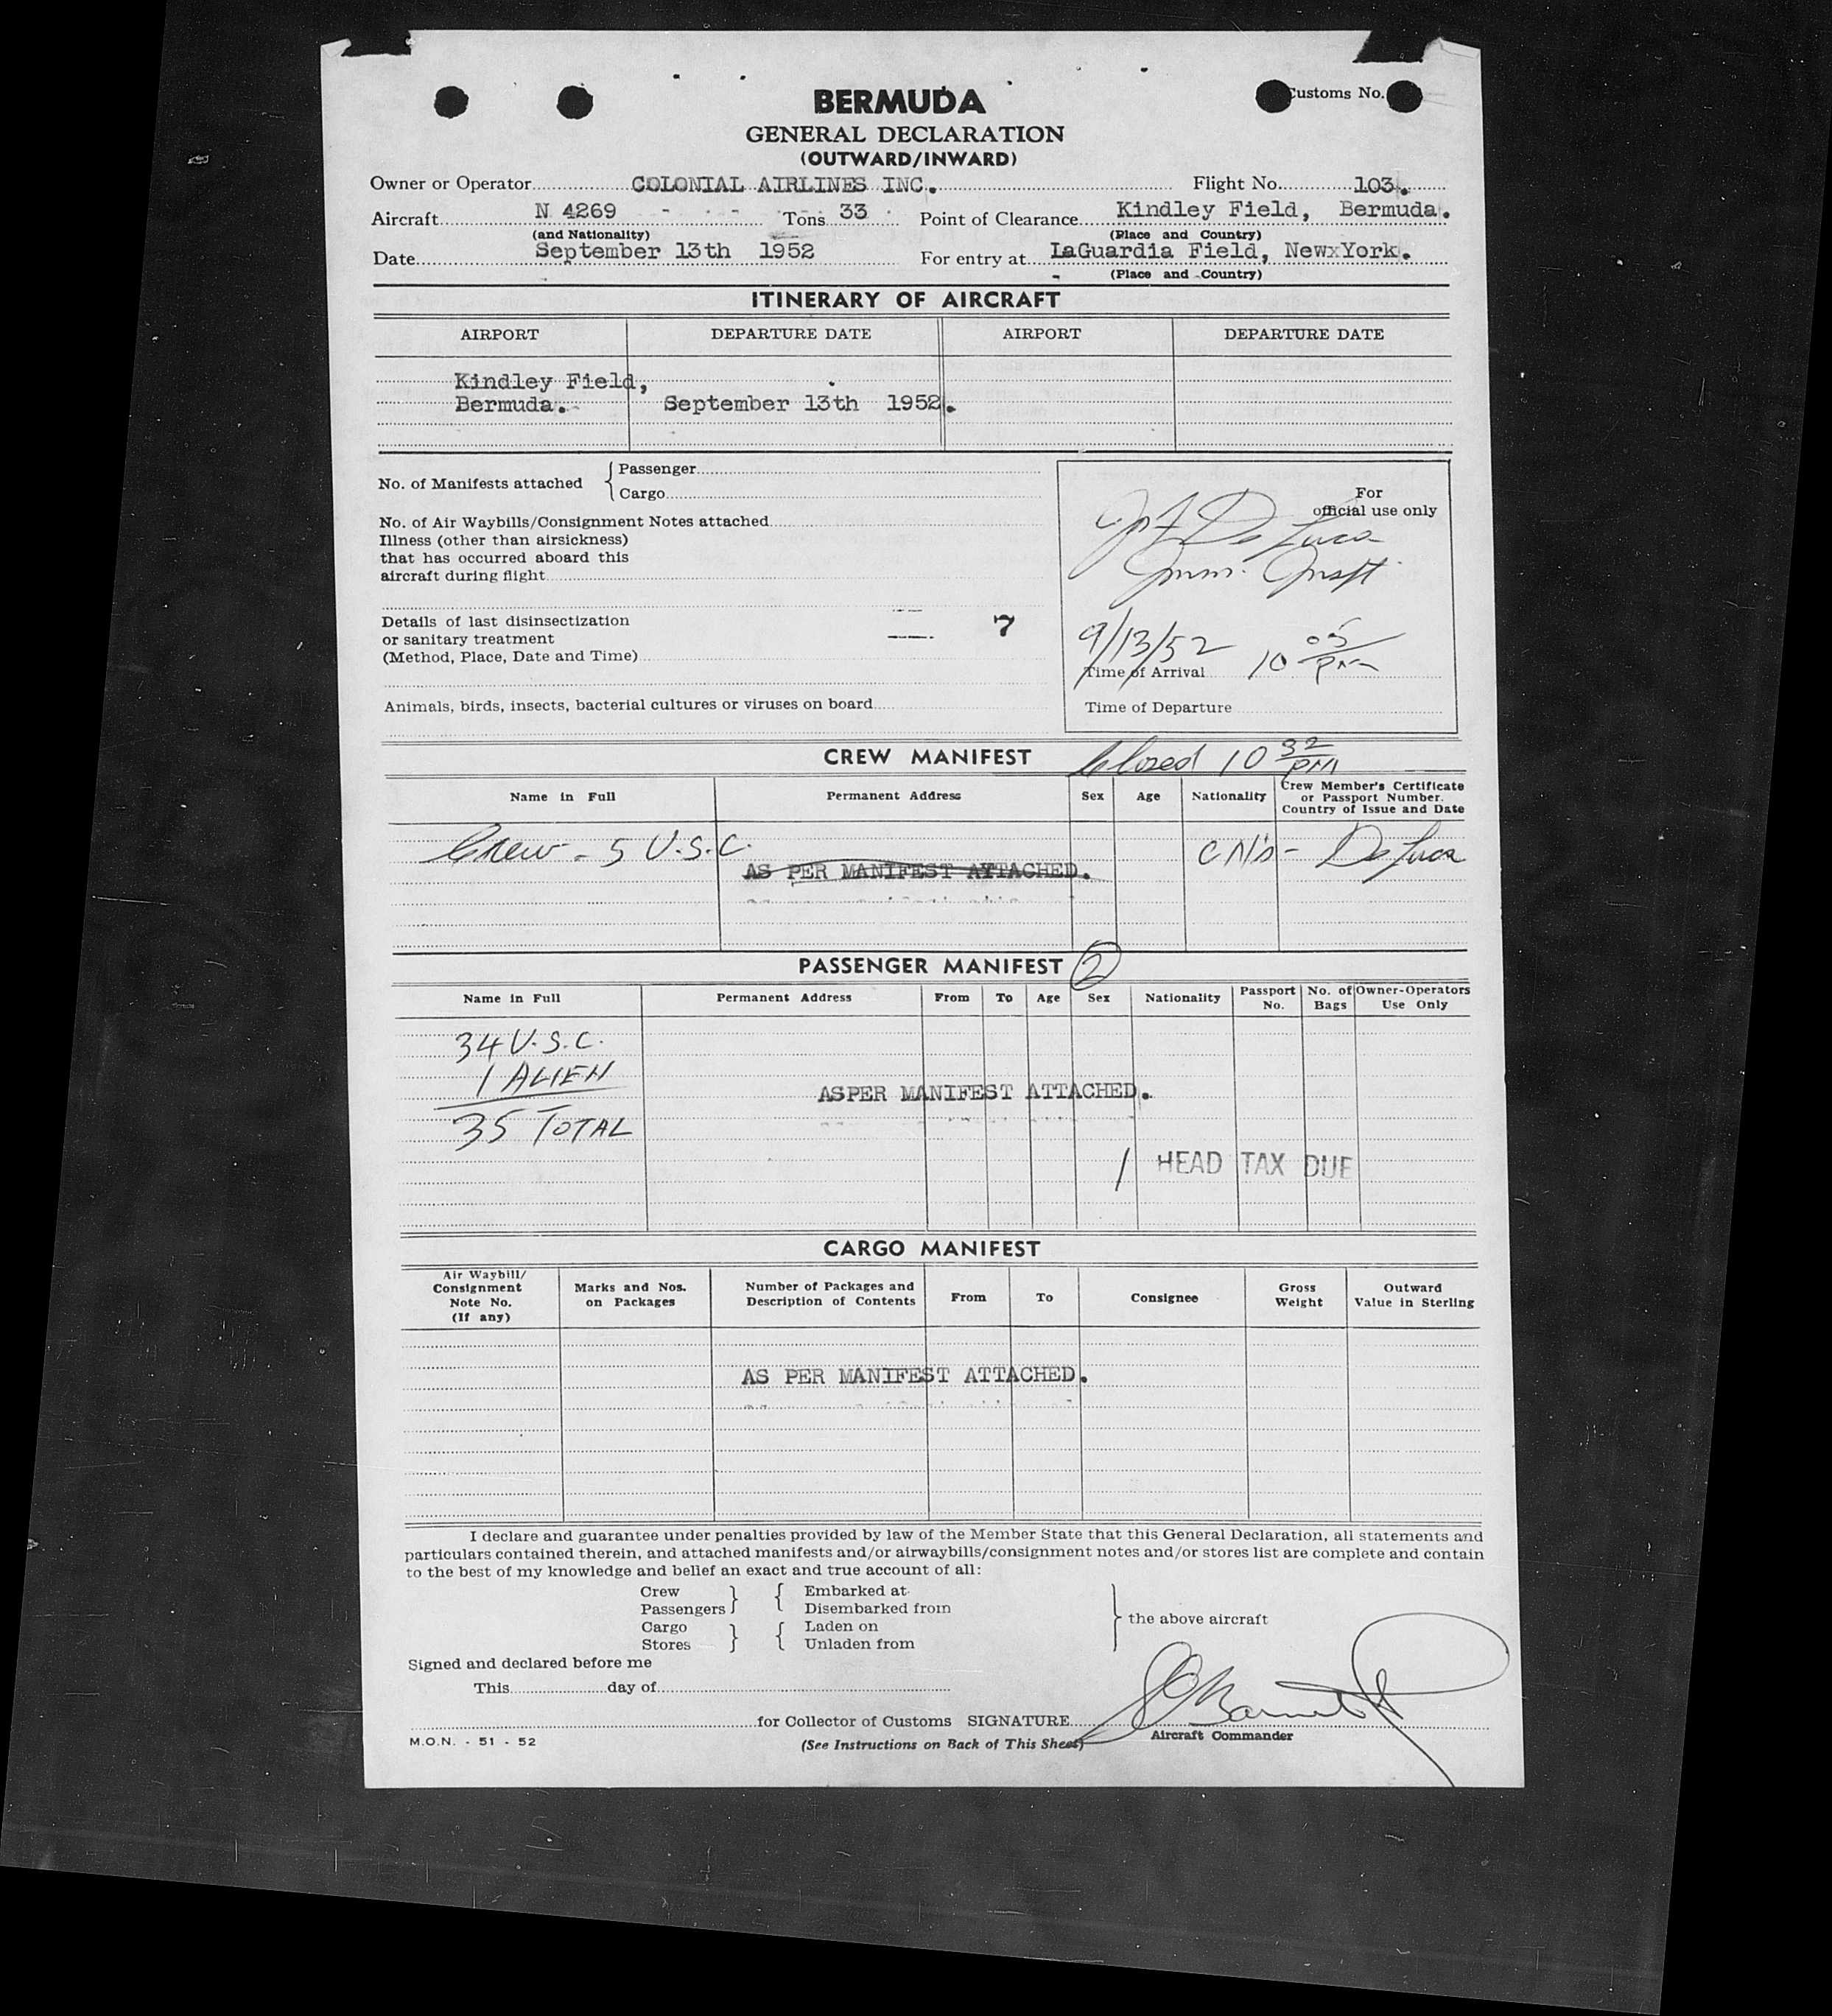 BERMUDA
Customs No.
GENERAL DECLARATION
(OUTWARD/INWARD)
Owner or Operator COLONIAL AIRLINES INC. Flight No. 103.
Aircraft N 4269 Tons 33 Point of Clearance Kindley Field, Bermuda.
(and Nationality) (Place and Country)
Date September 13th 1952 For entry at LaGuardia Field, NewxYork.
(Place and Country)
ITINERARY OF AIRCRAFT
AIRPORT DEPARTURE DATE AIRPORT DEPARTURE DATE
Kindley Field,
Bermuda. September 13th 1952.
No. of Manifests attached { Passenger
Cargo
For
official use only
De Luca
Imm. Inspt.
No. of Air Waybills/Consignment Notes attached
Illness (other than airsickness)
that has occurred aboard this
aircraft during flight
Details of last disinsectization
or sanitary treatment 7
(Method, Place, Date and Time)
9/13/52
Time of Arrival 10 05 PM
Animals, birds, insects, bacterial cultures or viruses on board
Time of Departure
CREW MANIFEST Closed 10 32 PM
Name in Full Permanent Address Sex Age Nationality Crew Member's Certificate
or Passport Number.
Country of Issue and Date
Crew - 5 U.S.C. CN's - De Luca
AS PER MANIFEST ATTACHED.
PASSENGER MANIFEST 2
Name in Full Permanent Address From To Age Sex Nationality Passport No. No. of Bags Owner-Operators Use Only
34 U.S.C.
1 ALIEN
ASPER MANIFEST ATTACHED.
35 TOTAL
1 HEAD TAX DUE
CARGO MANIFEST
Air Waybill/
Consignment
Note No.
(If any)
Marks and Nos.
on Packages
Number of Packages and
Description of Contents
From To Consignee
Gross
Weight
Outward
Value in Sterling
AS PER MANIFEST ATTACHED.
I declare and guarantee under penalties provided by law of the Member State that this General Declaration, all statements and
particulars contained therein, and attached manifests and/or airwaybills/consignment notes and/or stores list are complete and contain
to the best of my knowledge and belief an exact and true account of all:
Crew } { Embarked at
Passengers Disembarked from
} the above aircraft
Cargo } { Laden on
Stores Unladen from
Signed and declared before me
This day of
for Collector of Customs SIGNATURE
M.O.N. - 51 - 52 (See Instructions on Back of This Sheet) Aircraft Commander